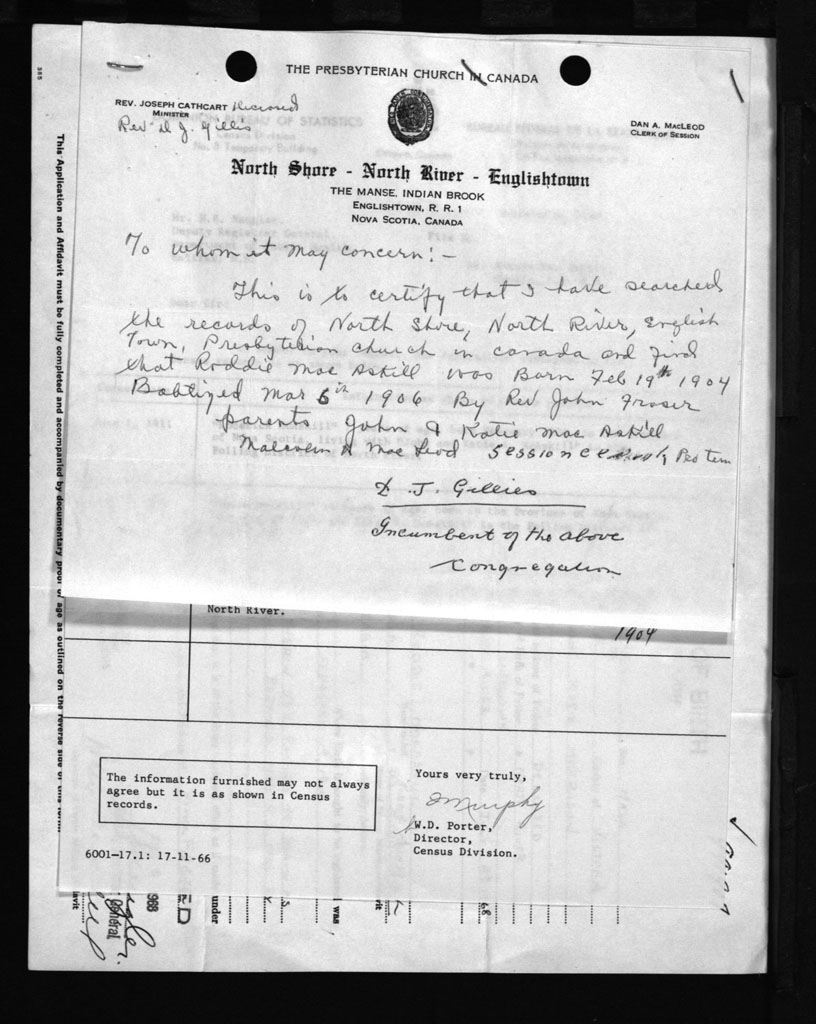 THE PRESBYTERIAN CHURCH IN CANADA
REV. JOSEPH CATHCART Deceased
MINISTER
Rev D. J. Gillis
DAN A. MACLEOD
CLERK OF SESSION
North Shore - North River - Englishtown
THE MANSE, INDIAN BROOK
ENGLISHTOWN, R. R. 1
NOVA SCOTIA, CANADA
To whom it may concern! -
This is to certify that I have searched
the records of North Shore, North River, English
Town, Presbyterian church in canada and find
that Roddie Mac Askill was Born Feb 19th 1904
Babtized Mar 6th 1906 By Rev John Fraser
parents John & Katie Mac Askill
Malcolm A Mac Leod Session Pro tem
D. J. Gillies
Incumbent of the above
Congregation
North River.
1904
The information furnished may not always
agree but it is as shown in Census
records.
Yours very truly,
W.D. Porter,
Director,
Census Division.
6001-17.1: 17-11-66
This Application and Affidavit must be fully completed and accompanied by documentary proof of age as outlined on the reverse side of this form
under
I was
68